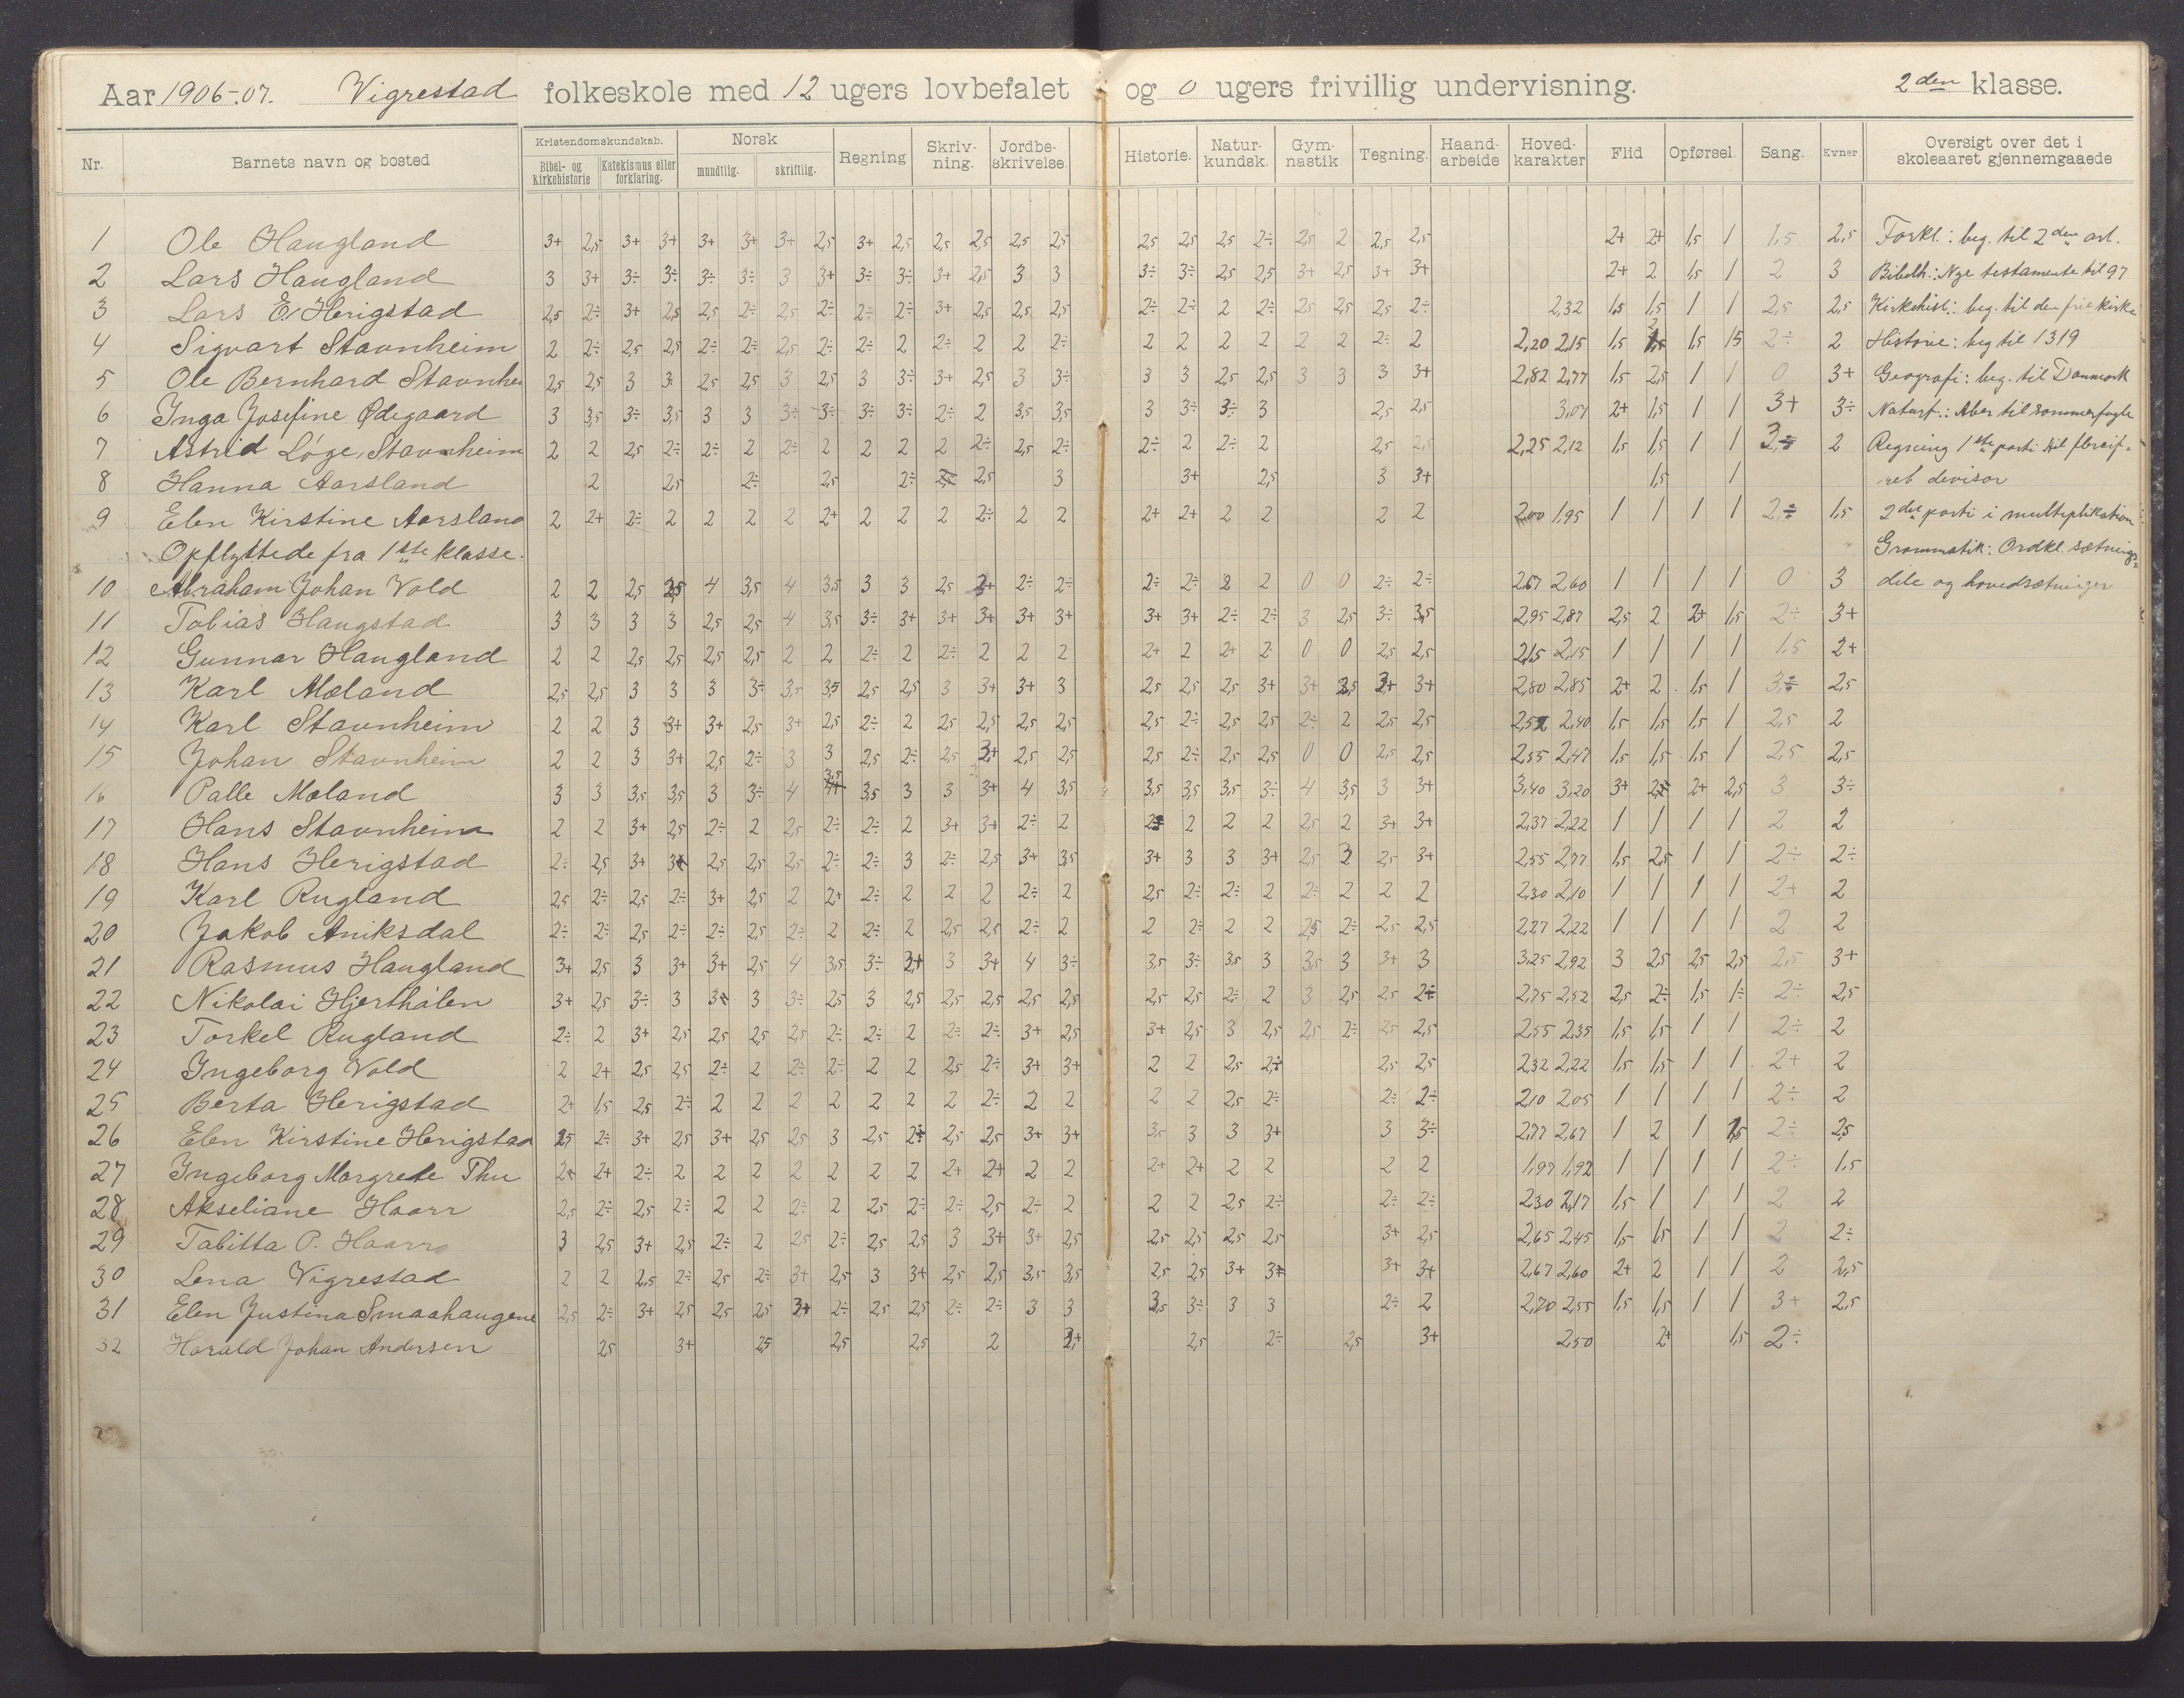 Aar 1906-07. Vigrestad folkeskole med 12 ugers lovbefalet og 0 ugers frivillig undervisning. 2den klasse.
Nr. Barnets navn og bosted Kristendomskundskab. Bibel- og Kirkehistorie Katekismus eller forklaring. Norsk mundtlig. skriftlig. Regning Skriv-ning. Jordbe-skrivelse. Historie. Natur-kundsk. Gym-nastik Tegning. Haand-arbeide Hoved-karakter Flid Opførsel. Sang. Evner Oversigt over det i skoleaaret gjennemgaaede
1 Ole Haugland 3+ 2,5 3+ 3+ 3+ 3+ 3+ 2,5 3+ 2,5 2,5 2,5 2,5 2,5 2,5 2,5 2,5 2÷ 2,5 2 2,5 2,5 2+ 2+ 1,5 1 1,5 2,5 Forkl.: beg. til 2den art.
2 Lars Haugland 3 3+ 3÷ 3÷ 3÷ 3÷ 3 3+ 3÷ 3÷ 3+ 2,5 3 3 3÷ 3÷ 2,5 2,5 3+ 2,5 3+ 3+ 2+ 2 1,5 1 2 3 Bibelh.: Nye testamente til 97
3 Lars E. Herigstad 2,5 2÷ 3+ 2,5 2,5 2÷ 2,5 2÷ 2÷ 2÷ 3+ 2,5 2,5 2,5 2÷ 2÷ 2 2÷ 2,5 2,5 2,5 2÷ 2,32 1,5 1,5 1 1 2,5 2,5 Kirkehist.: beg. til den frie kirke
4 Sigvart Stavnheim 2 2÷ 2,5 2,5 2÷ 2÷ 2,5 2÷ 2÷ 2 2÷ 2 2 2÷ 2 2 2 2 2 2 2÷ 2 2,20 2,15 1,5 2 1,5 15 2÷ 2 Historie: beg til 1319
5 Ole Bernhard Stavnhei 2,5 2,5 3 3 2,5 2,5 3 2,5 3 3÷ 3+ 2,5 3 3÷ 3 3 2,5 2,5 3 3 3 3+ 2,82 2,77 1,5 2,5 1 1 0 3+ Geografi: beg. til Danmark
6 Inga Josefine Ødegaard 3 3,5 3÷ 3,5 3 3 3÷ 3÷ 3÷ 3÷ 2÷ 2 3,5 3,5 3 3÷ 3÷ 3 2,5 2,5 3,07 2+ 1,5 1 1 3+ 3÷ Naturf.: Aber til sommerfugle
7 Astrid Løge, Stavnheim 2 2 2,5 2÷ 2÷ 2 2÷ 2 2 2 2 2÷ 2,5 2÷ 2÷ 2 2÷ 2 2,5 2,5 2,25 2,12 1,5 1,5 1 1 2 Regning 1ste parti til flercif-
8 Hanna Aarsland 2 2,5 2÷ 2,5 2÷ 2,5 3 3+ 2,5 3 3+ 1,5 1 ret devisor
9 Elen Kirstine Aarsland 2 2+ 2÷ 2 2 2 2 2+ 2 2 2 2÷ 2 2 2+ 2+ 2 2 2 2 2,00 1,95 1 1 1 1 2÷ 1,5 2det parti i multiplikation
Opflyttede fra 1ste klasse. Grammatik: Ordkl. sætnings-
10 Abraham Johan Vold 2 2 2,5 2,5 4 3,5 4 3,5 3 3 2,5 3+ 2÷ 2÷ 2÷ 2÷ 2 2 0 0 2÷ 2÷ 2,67 2,60 1 1 1 1 0 3 dile og hovedsætninger
11 Tobias Haugstad 3 3 3 3 2,5 2,5 4 3,5 3÷ 3+ 3+ 3+ 3+ 3+ 3+ 3+ 2÷ 2÷ 3 2,5 3÷ 3,5 2,95 2,87 2,5 2 2+ 1,5 2÷ 3+
12 Gunnar Haugland 2 2 2,5 2,5 2,5 2,5 2 2 2÷ 2 2÷ 2 2 2 2+ 2 2+ 2 0 0 2,5 2,5 2,15 2,15 1 1 1 1 1,5 2+
13 Karl Mæland 2,5 2,5 3 3 3 3÷ 3,5 3,5 2,5 2,5 3 3+ 3+ 3 2,5 2,5 2,5 3+ 3+ 3,5 3+ 3+ 2,80 2,85 2+ 2 1,5 1 3÷ 2,5
14 Karl Stavnheim 2 2 3 3+ 3+ 2,5 3+ 2,5 2÷ 2 2,5 2,5 2,5 2,5 2,5 2÷ 2,5 2,5 2÷ 2 2,5 2,5 2,52 2,40 1,5 1,5 1,5 1 2,5 2
15 Johan Stavnheim 2 2 3 3+ 2,5 2÷ 3 3 2,5 2÷ 2,5 3+ 2,5 2,5 2,5 2÷ 2,5 2,5 0 0 2,5 2,5 2,55 2,47 1,5 1,5 1,5 1 2,5 2,5
16 Palle Mæland 3 3 3,5 3,5 3 3÷ 4 3,5 3,5 3 3 3+ 4 3,5 3,5 3,5 3,5 3÷ 4 3,5 3 3+ 3,40 3,20 3+ 2+ 2,5 3 3÷
17 Hans Stavnheim 2 2 3+ 2,5 2÷ 2 2,5 2÷ 2÷ 2 3+ 3+ 2÷ 2 2 2 2 2,5 2 3+ 3+ 2,37 2,22 1 1 1 1 2 2
18 Hans Herigstad 2÷ 2,5 3+ 3+ 2,5 2,5 2,5 2÷ 2÷ 3 2÷ 2,5 3+ 3,5 3+ 3 3 3+ 2,5 2 2,5 3+ 2,55 2,77 1,5 2,5 1 1 2÷ 2÷
19 Karl Rugland 2,5 2÷ 2,5 2÷ 3+ 2,5 2 2+ 2÷ 2 2 2 2÷ 2 2,5 2÷ 2÷ 2 2÷ 2 2 2 2,30 2,10 1 1 1 1 2+ 2
20 Jakob Aniksdal 2÷ 2÷ 2,5 2÷ 2÷ 2,5 2÷ 2 2÷ 2 2,5 2,5 2÷ 2 2 2÷ 2 2 2,5 2÷ 2,5 2,5 2,27 2,22 1 1 1 1 2 2
21 Rasmus Haugland 3+ 2,5 3 3+ 3+ 2,5 4 3,5 3÷ 3+ 3 3+ 4 3÷ 3,5 3÷ 3,5 3 3,5 3 3+ 3 3,25 2,92 3 2,5 2,5 2,5 2,5 3+
22 Nikolai Hjerthålen 3+ 2,5 3÷ 3 3+ 3 3÷ 2,5 3 2,5 2,5 2,5 2,5 2,5 2,5 2,5 2÷ 2 3 2,5 2,5 2÷ 2,75 2,52 2,5 2÷ 1,5 1÷ 2÷ 2,5
23 Torkel Rugland 2÷ 2 3+ 2,5 2,5 2,5 2,5 2÷ 2÷ 2 2÷ 2÷ 3+ 2,5 3+ 2,5 3 2,5 2,5 2÷ 2,5 2,5 2,55 2,35 1,5 1,5 1 1 2÷ 2
24 Ingeborg Vold 2 2+ 2,5 2,5 2÷ 2 2÷ 2÷ 2 2 2,5 2÷ 3+ 3+ 2 2 2,5 2÷ 2,5 2,5 2,32 2,22 1,5 1,5 1 1 2+ 2
25 Berta Herigstad 2+ 1,5 2,5 2÷ 2 2 2 2 2 2 2 2÷ 2 2 2 2 2,5 2÷ 2÷ 2÷ 2,10 2,05 1 1 1 1 2÷ 2
26 Elen Kirstine Herigstad 2,5 2÷ 3+ 2,5 3+ 2,5 2,5 3 2,5 2÷ 2,5 2,5 3+ 3+ 3,5 3 3 3+ 3 3÷ 2,77 2,67 1 2 1 1,5 2÷ 2,5
27 Ingeborg Margrete Thu 2+ 2+ 2÷ 2 2 2 2 2 2 2 2+ 2+ 2 2 2+ 2+ 2 2 2 2 1,97 1,92 1 1 1 1 2÷ 1,5
28 Akseliane Haarr 2,5 2÷ 2,5 2÷ 2 2 2÷ 2 2,5 2÷ 2÷ 2,5 2÷ 2 2 2 2,5 2÷ 2÷ 2÷ 2,30 2,17 1,5 1 1 1 2 2
29 Tabitta P. Haarr 3 2,5 3+ 2,5 2÷ 2 2,5 2÷ 2,5 2,5 3 3+ 3+ 2,5 2,5 2,5 2,5 2,5 3+ 2,5 2,65 2,45 1,5 1,5 1 1 2 2÷
30 Lena Vigrestad 2 2 2,5 2÷ 2,5 2÷ 3+ 2,5 3 3+ 2,5 2,5 3,5 3,5 2,5 2,5 3+ 3+ 3+ 3+ 2,67 2,60 2+ 2 1 1 2 2,5
31 Elen Justina Smaahaugene 2,5 2÷ 3+ 2,5 2,5 2,5 3+ 2÷ 2,5 2,5 2÷ 2÷ 3 3 3,5 3÷ 3 3 2÷ 2 2,70 2,55 1,5 1,5 1 1 3+ 2,5
32 Harald Johan Andersen 2,5 3+ 2,5 2,5 2,5 2 3+ 2,5 2÷ 2,5 3+ 2,50 2+ 1,5 2÷